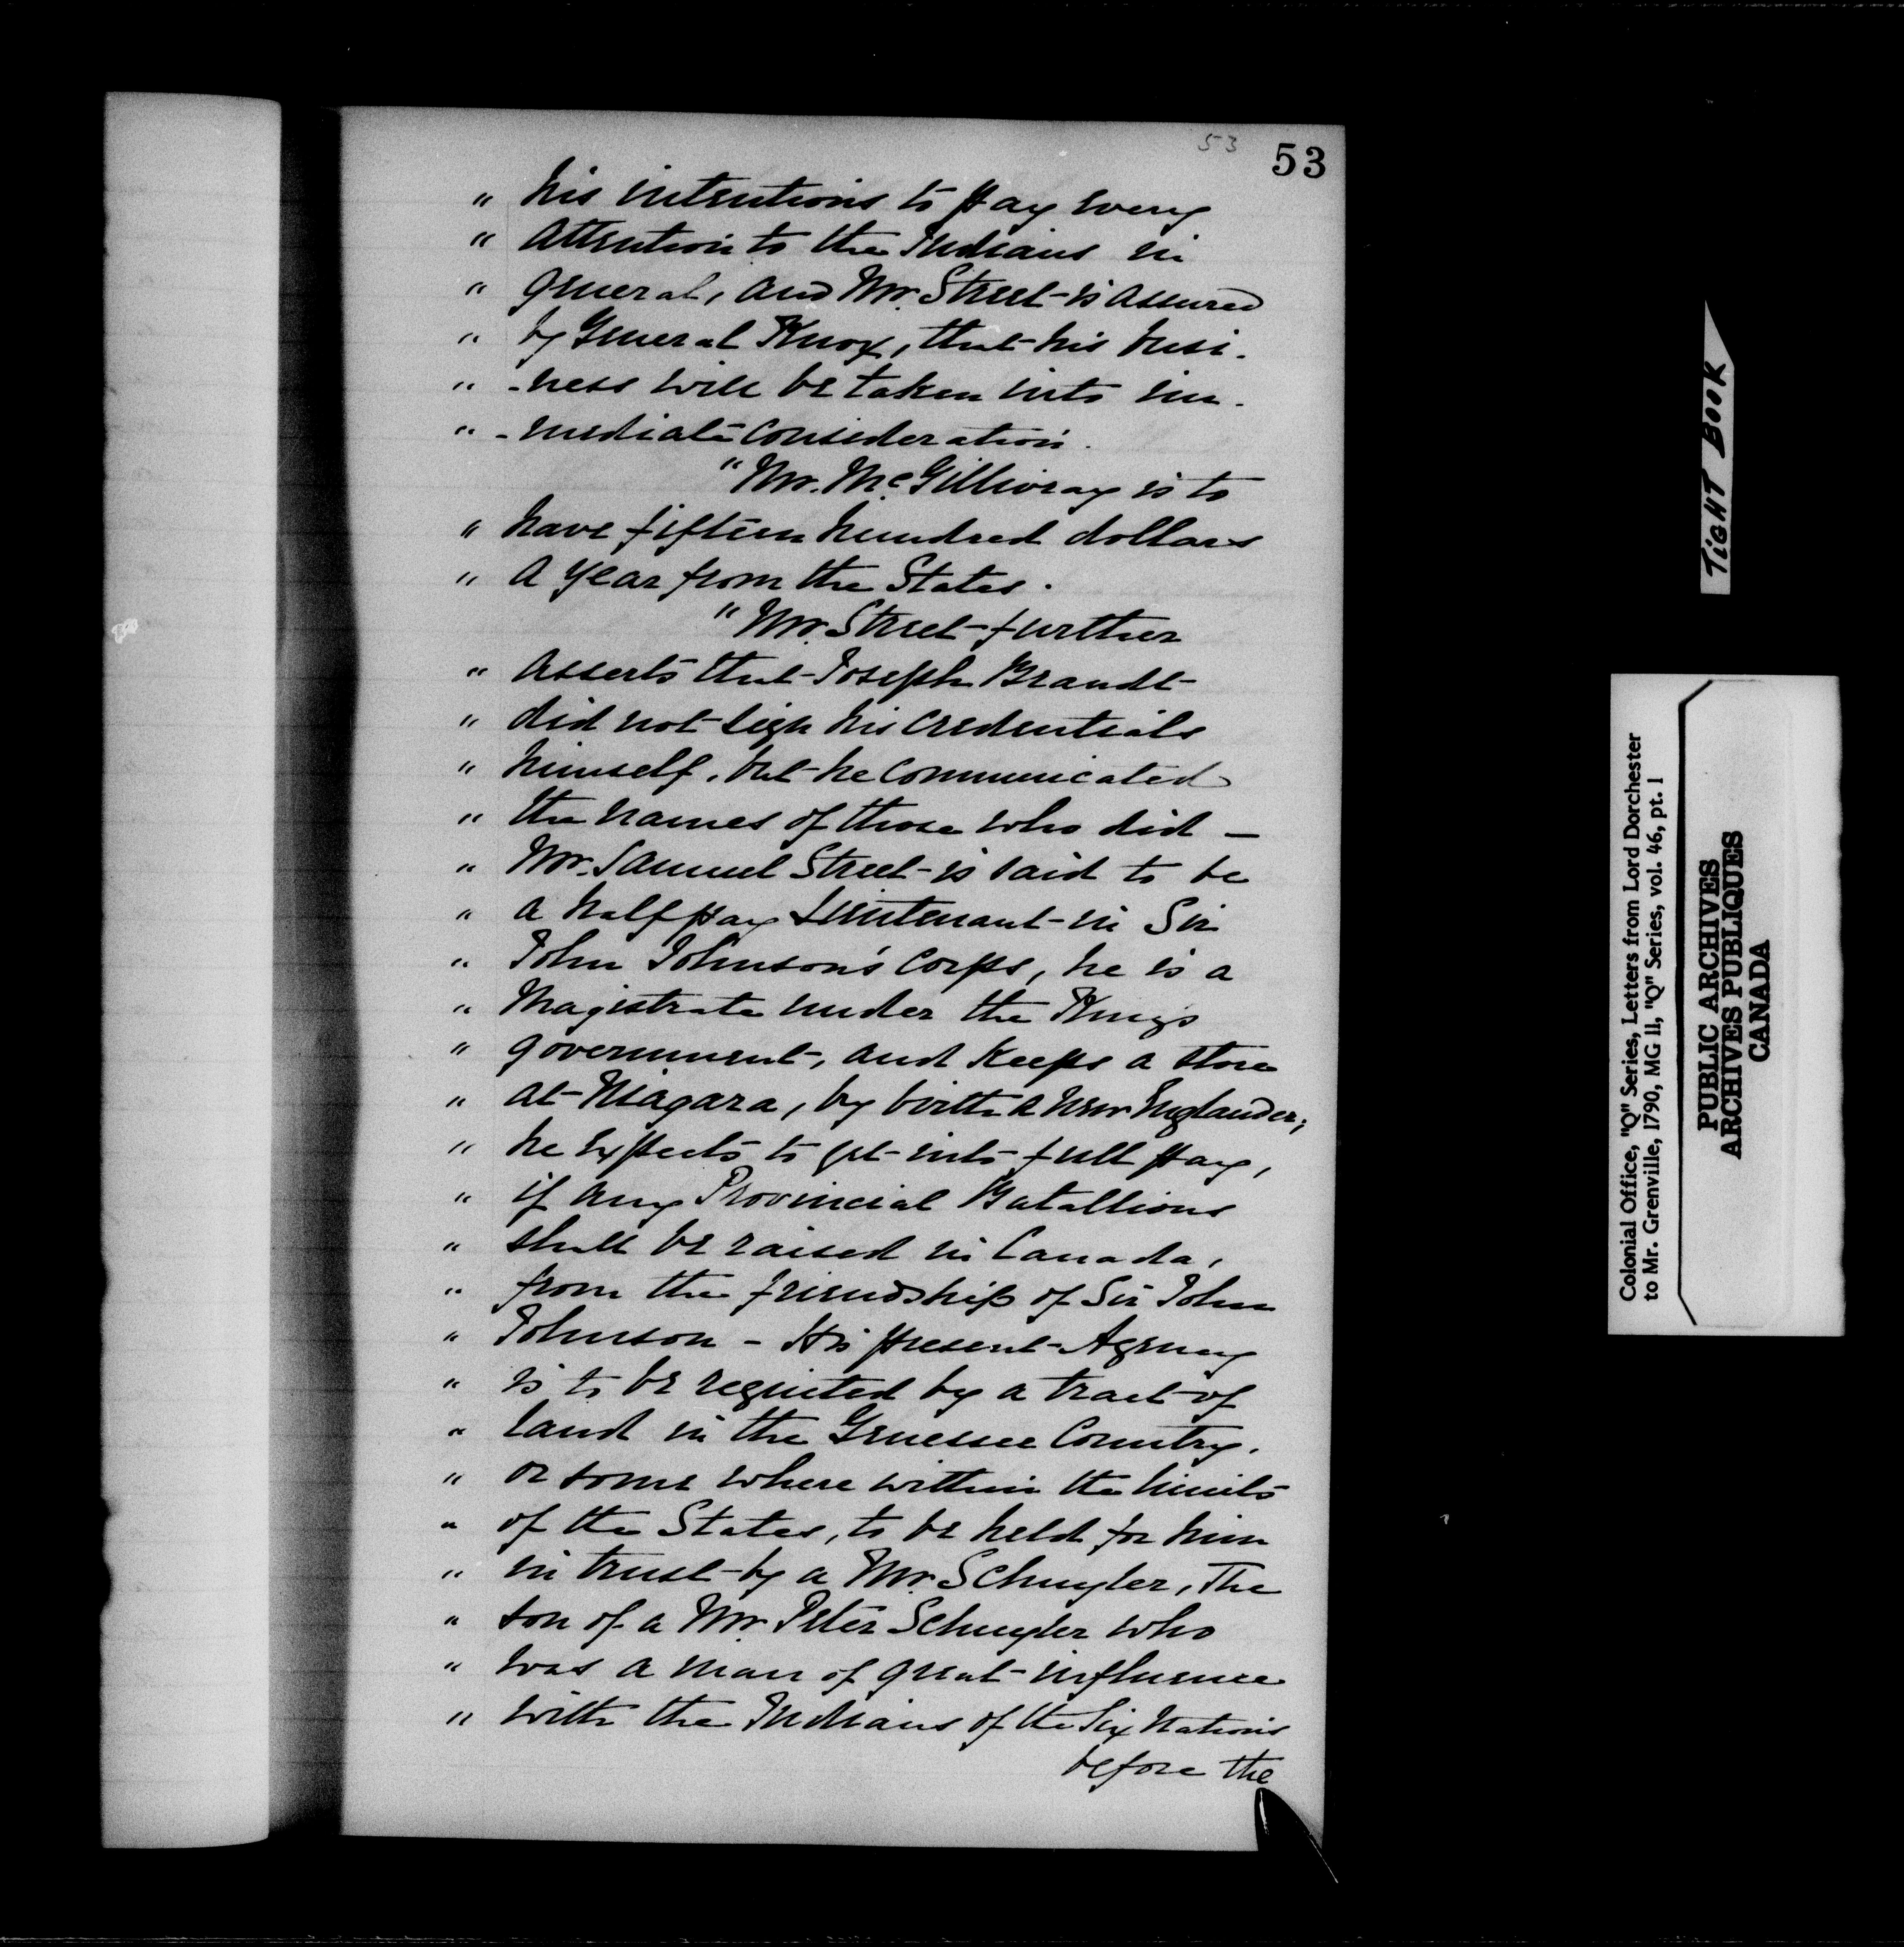 53 53
" his intentions to pay every
" attention to the Indians in
" general, and Mr. Street is assured
" by General Knox, that his busi-
" -ness will be taken into im-
" -mediate consideration.
" Mr. McGillivray is to
" have fifteen hundred dollars
" a year from the States.
" Mr. Street further
" asserts that Joseph Brandt
" did not sign his credentials
" himself, but he communicated
" the names of those who did —
" Mr. Samuel Street is said to be
" a half pay Lieutenant in Sir
" John Johnson's corps, he is a
" Magistrate under the King's
" government, and keeps a store
" at Niagara, by birth a New Englander;
" he expects to get into full pay,
" if any Provincial Batallions
" shall be raised in Canada,
" from the friendship of Sir John
" Johnson – His present Agency
" is to be requited by a tract of
" land in the Genessee Country,
" or some where within the limits
" of the States, to be held for him
" in trust by a Mr. Schuyler, The
" son of a Mr. Peter Schuyler who
" was a man of great influence
" with the Indians of the Six Nations
before the
TIGHT BOOK
Colonial Office, "Q" Series, Letters from Lord Dorchester
to Mr. Grenville, 1790, MG 11, "Q" Series, vol. 46, pt. 1
PUBLIC ARCHIVES
ARCHIVES PUBLIQUES
CANADA